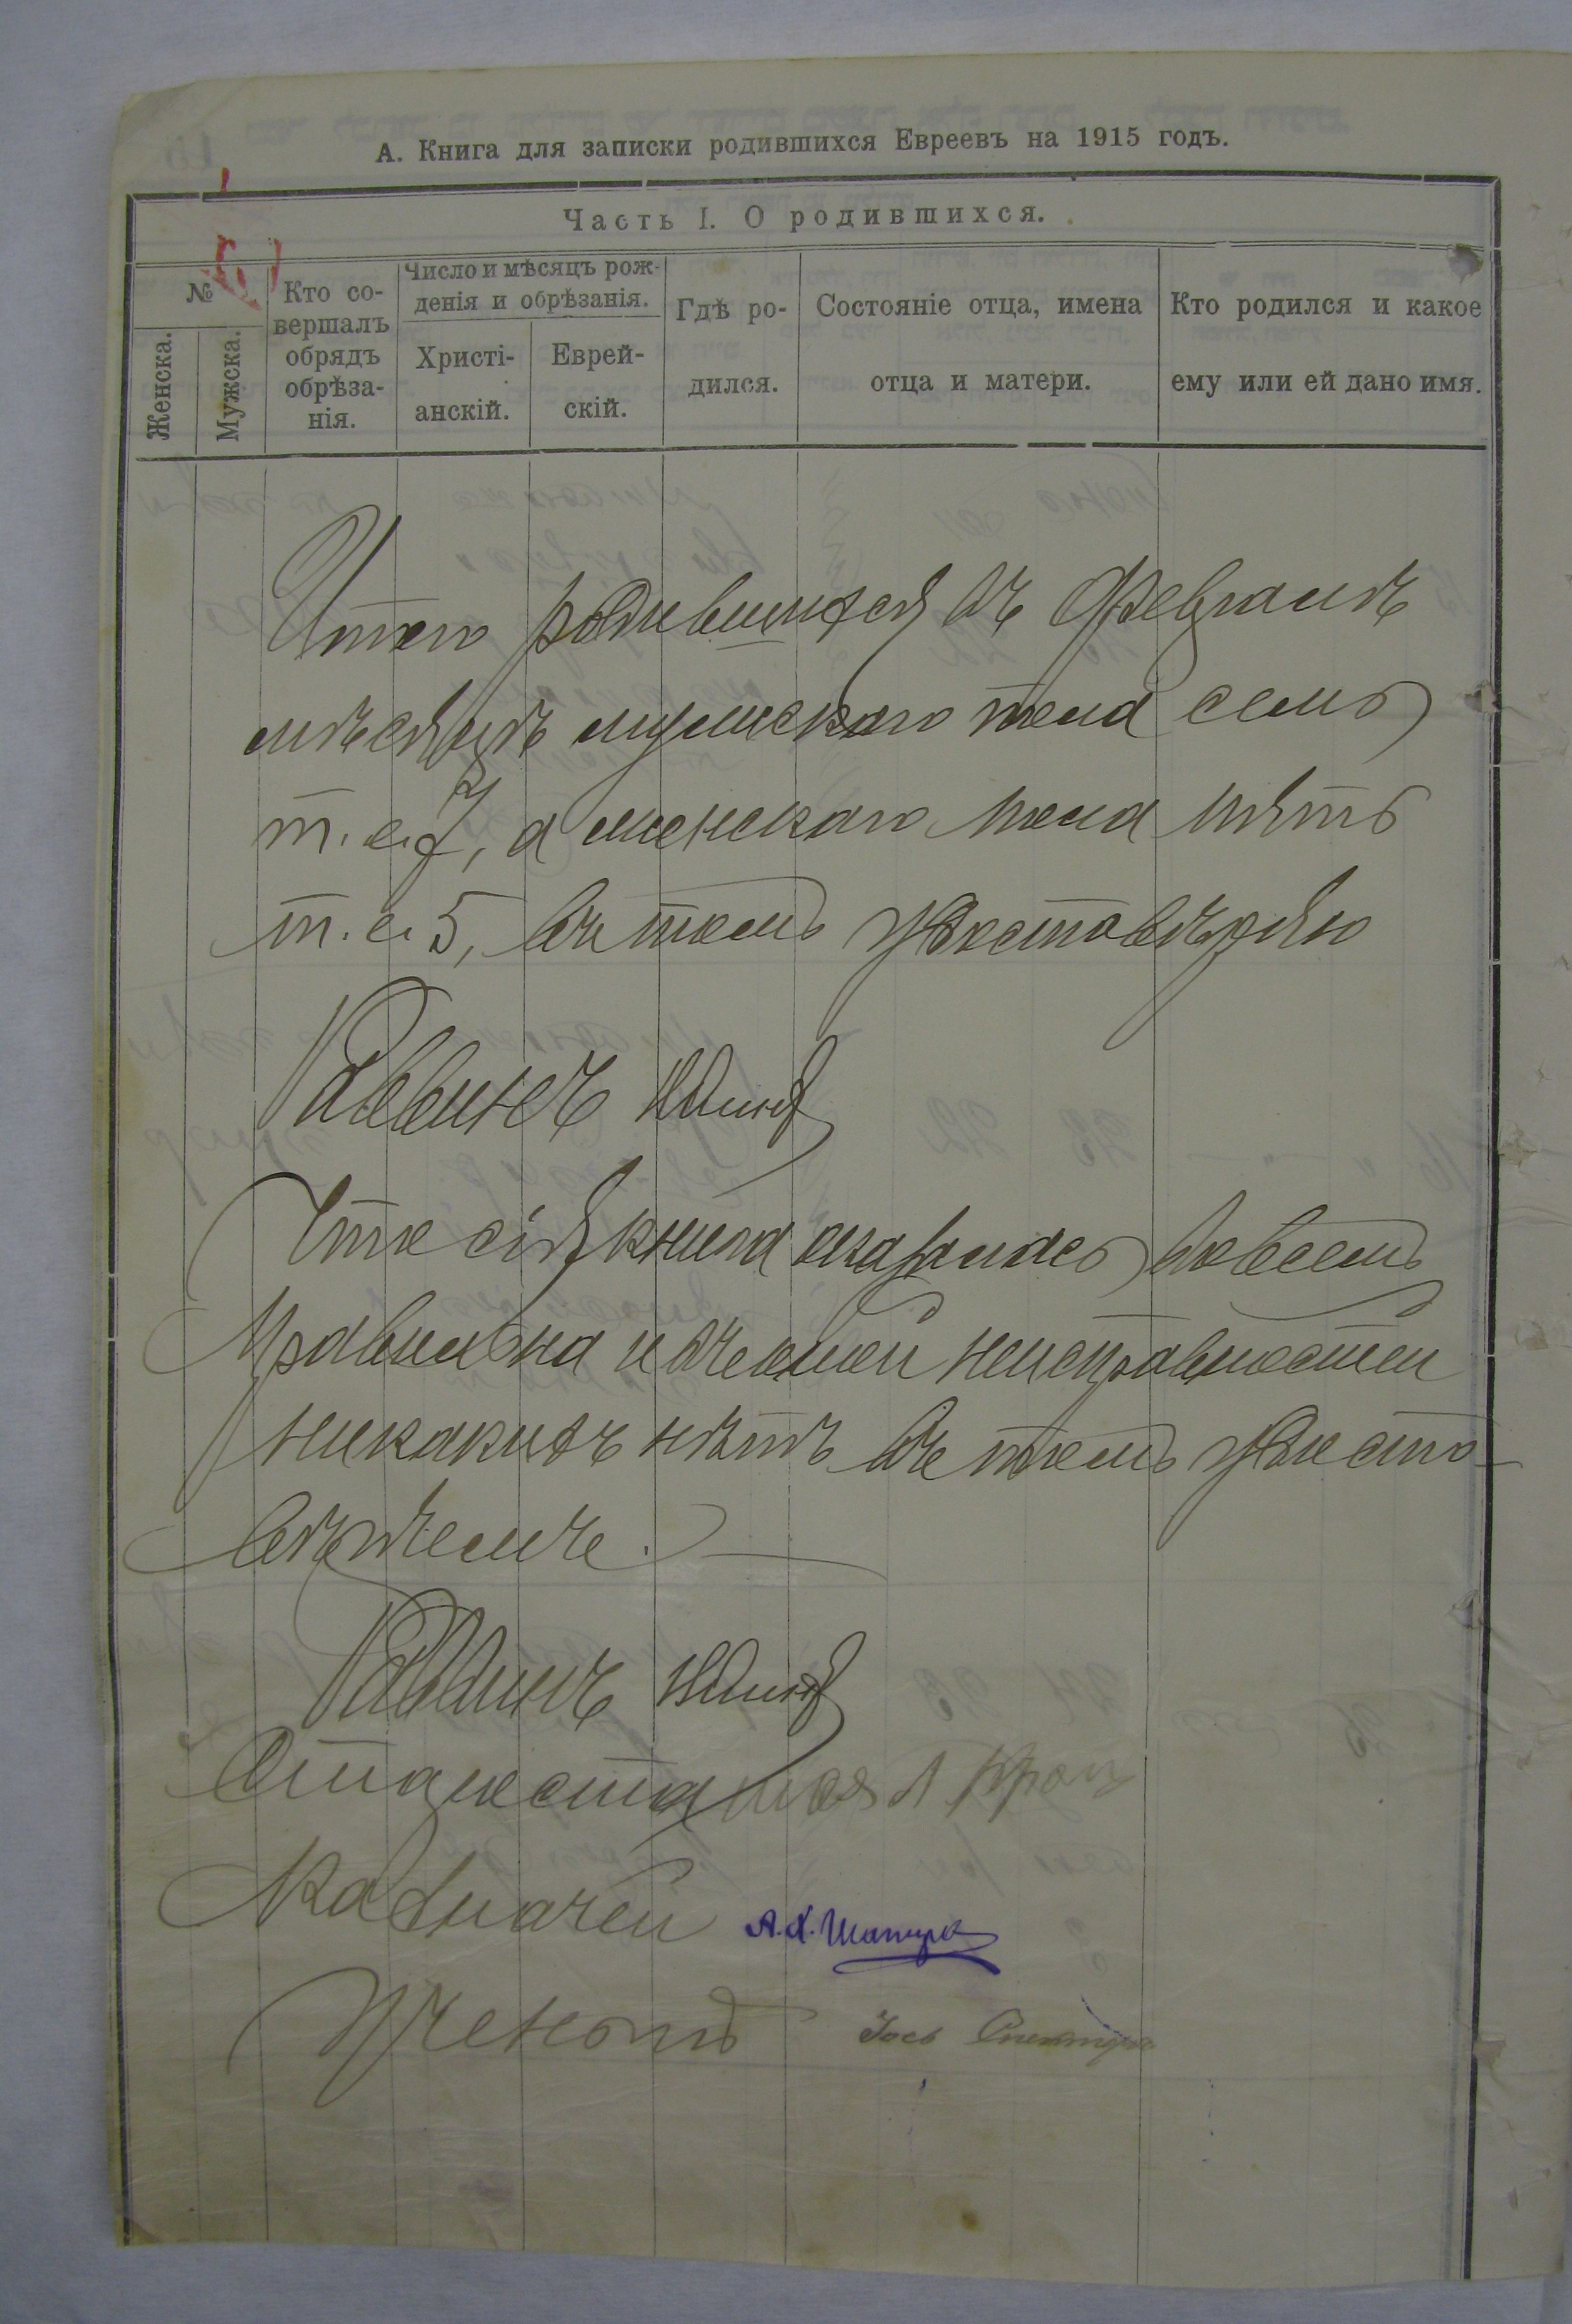 А. Книга для записки родившихся Евреевъ на 1915 годъ.
Часть I. О родившихся.
№
Женска.
Мужска.
Кто со-
вершалъ
обрядъ
обрѣза-
нія.
Число и мѣсяцъ рож-
денія и обрѣзанія.
Христі-
анскій.
Еврей-
скій.
Гдѣ ро-
дился.
Состояніе отца, имена
отца и матери.
Кто родился и какое
ему или ей дано имя.
Итого родившихся въ Февралѣ
мѣсяцѣ мужскаго пола семь
т. е. 7, а женскаго пола пять
т. е. 5, въ томъ удостовѣряю
Раввинъ
Что сія книга оказалась вовсемъ
правильна и въ оной неисправностей
никакихъ нѣтъ въ томъ удосто-
вѣряемъ.
Раввинъ
Староста
Казначей А. Х. Шапиро
Ученый Іось Спекторъ